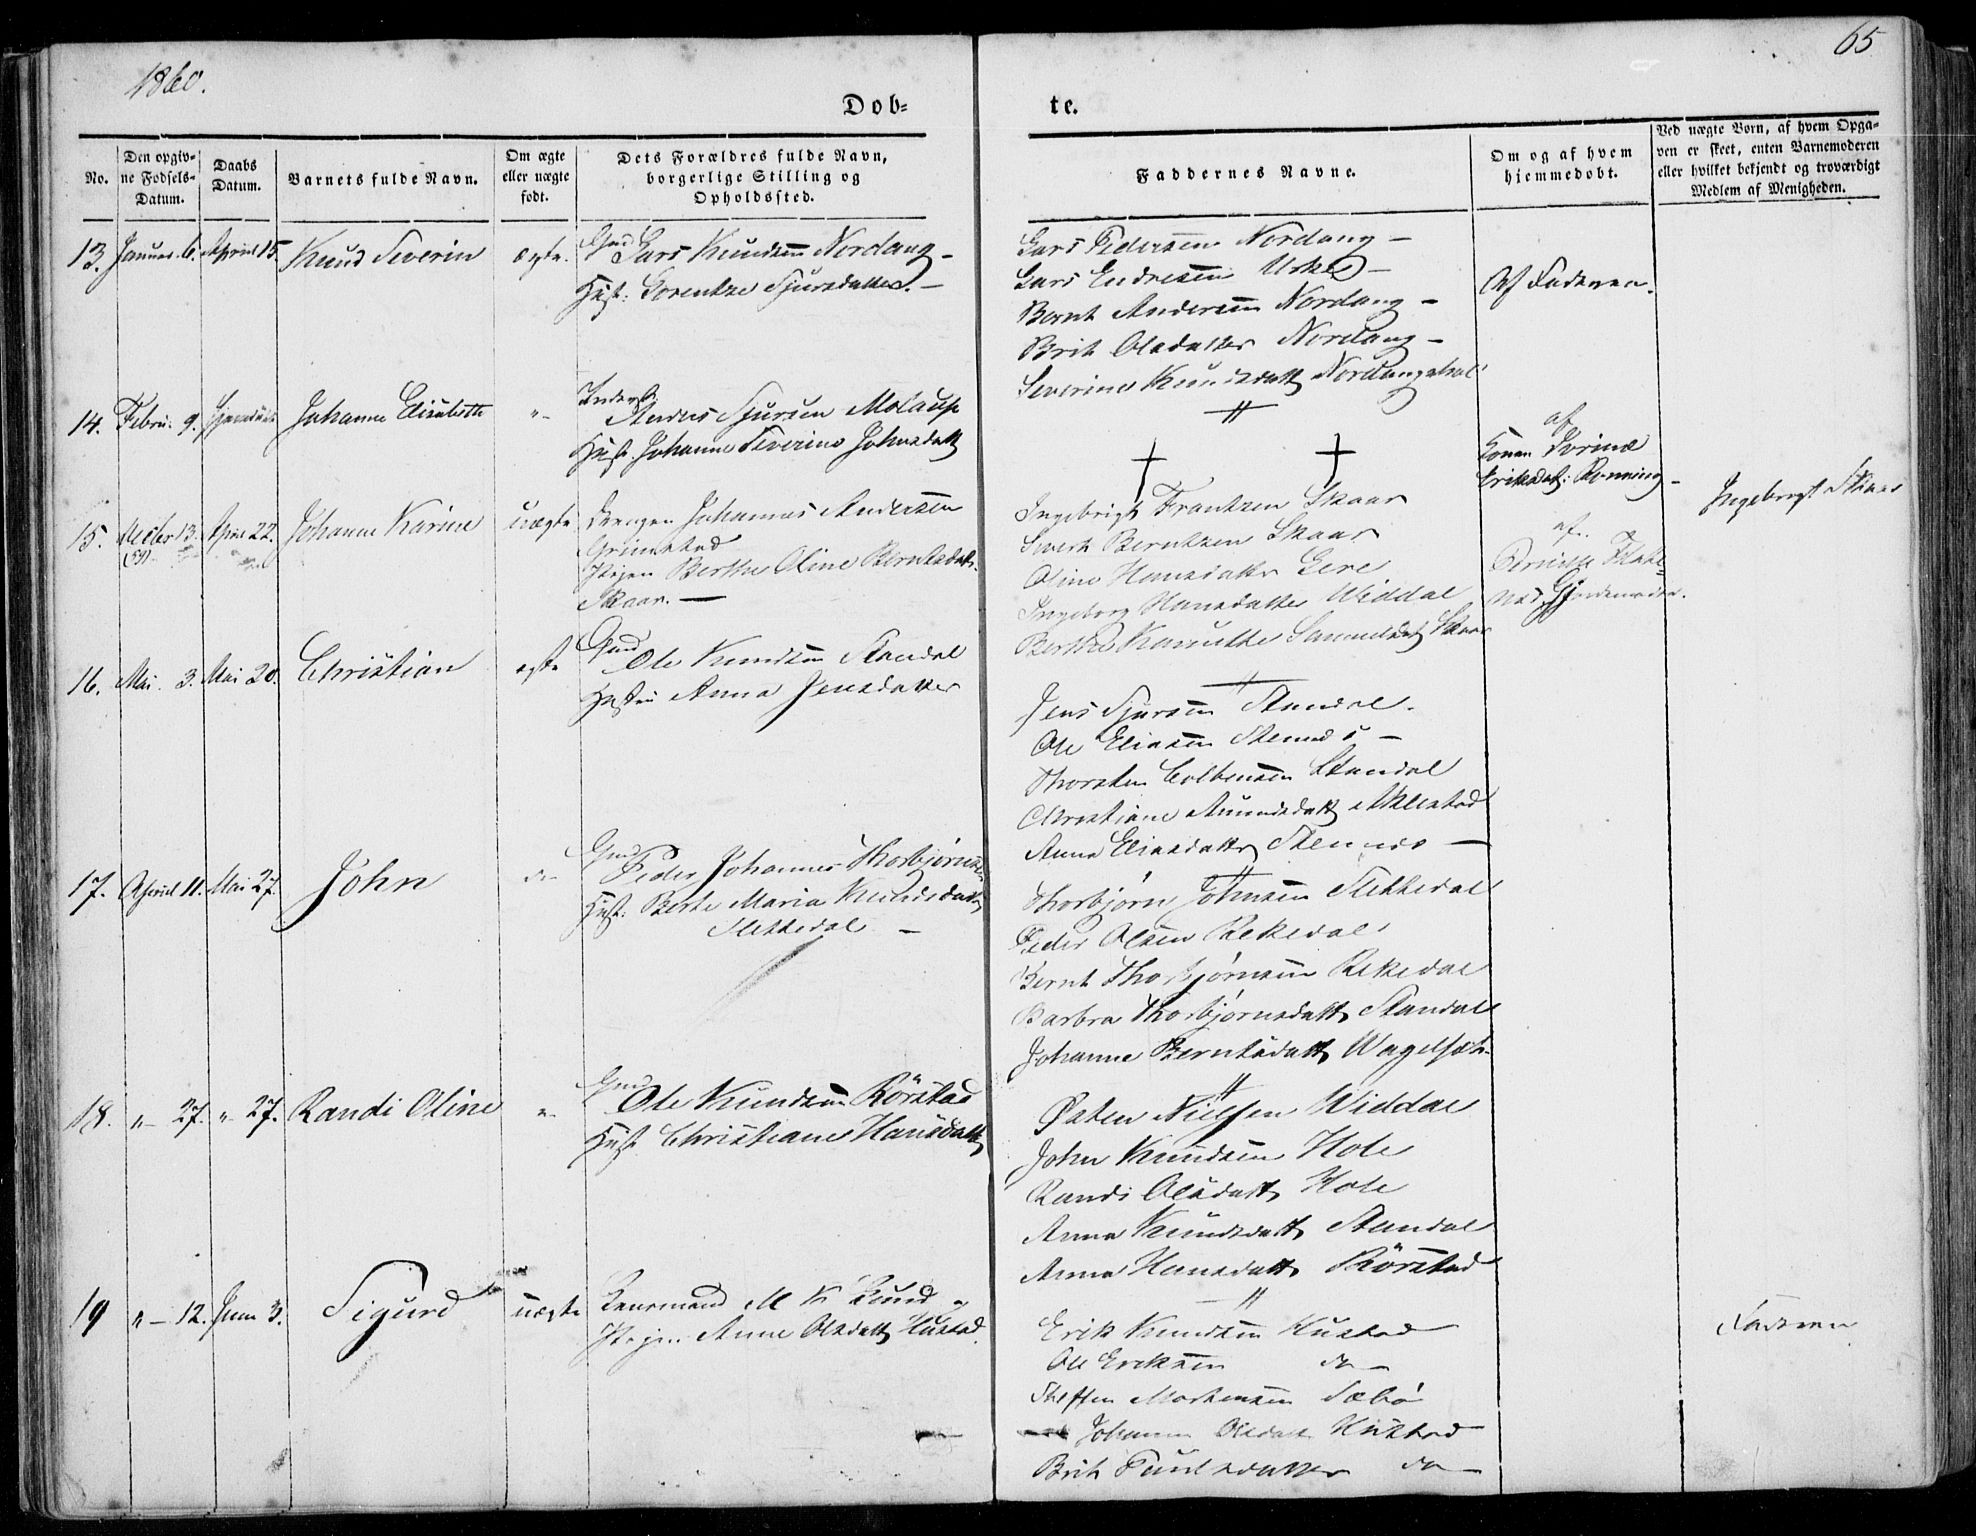 1860.
65
Dob-
te.
No.
Den opgiv-
ne Fodsels-
Datum.
Daabs
Datum.
Barnets fulde Navn.
Om ægte
eller uægte
født.
Dets Forældres fulde Navn,
borgerlige Stilling og
Opholdssted.
Faddernes Navne.
Om og af hvem
hjemmedobt.
Ved uægte Born, af hvem Opga-
ven er skeet, enten Barnemoderen
eller hvilket bekjendt og troværdigt
Medlem af Menigheden.
13. Januar. 6. April 15. Knud Severin ægte.
Gmd Lars Knudsen Nordang -
Hust: Lorentze Sjursdatter. -
Lars Pedersen Nordang -
Lars Endresen Urke -
Bernt Andersen Nordang -
Brit Olsdatter Nordang -
Severine Knudsdatt Nordangsdal
Af Faderen.
14. Febru. 9. Johanne Elisabeth "-
Inderst
Anders Sjursen Molaup
Hust. Johanne Severine Johnsdatt
af
Konen
Eriksdat: Rønning -
15. Decbr 13. April 22. Johanne Karine uægte
(59)
Drengen Johannes Andersen
Grimstad
Pigen Berthe Oline Berntsdatt.
Skaar. -
Ingebrigt Frantzen Skaar
Sivert Berntzen Skaar
Oline Hansdatter
Ingeborg Hansdatter Widdal
Berthe Samuelsdat Skaar
af.
Gjordemoder.
Ingebrigt Skaar
16. Mai. 3. Mai 20. Christian egte
Gmd
Ole Knudsen Standal
Hustru Anna Jensdatter
Jens Sjursen Standal.
Ole Eliasen Stennes -
Thorsten Standal
Christiane Amundsdatt
Anna Eliasdatter Stennes -
17. April 11. Mai 27. John do
Gmd
Peder Johannes Thorbjørnsen
Hust: Berte Maria Knudsdatt
Slettedal -
Thorbjørn Johnsen Slettedal
Peder Olsen Rekedal
Bernt Thorbjørnsen Rekedal
Barbra Thorbjørnsdatt Standal
Johanne Berntsdatt
18. "- 27. "- 27. Randi Oline "-
Gmd
Ole Knudsen Rörstad
Hust Christiane Hansdatt
Østen Nielsen Widdal
John Knudsen Hole
Randi Olsdatt Hole
Anna Knudsdatt Standal
Anna Hansdatt Rörstad
19 "- 12. Juni 3. Sigurd uægte
M K Lund
Pigen Anne Olsdatt Hustad.
Erik Knudsen Hustad
Ole Eriksen do -
Steffen Mortensen Sæbø
Johanne Olsdatt Hustad
Brit Paulsdatter do -
Faderen